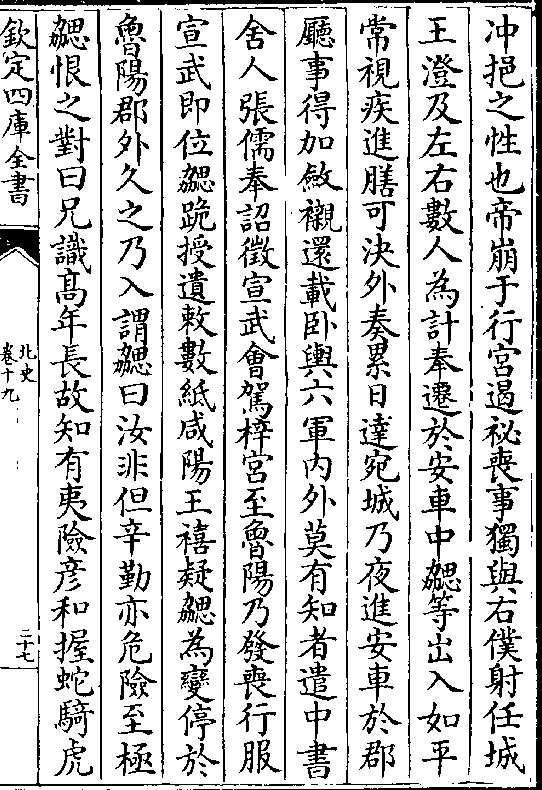 冲挹之性也帝崩于行宫遏祕喪事獨與右僕射任城
王澄及左右數人為計奉遷於安車中勰等出入如平
常視疾進膳可決外奏累日達宛城乃夜進安車於郡
廳事得加斂襯還載卧輿六軍内外莫有知者遣中書
舍人張儒奉詔徵宣武會駕梓宫至魯陽乃發喪行服
宣武即位勰跪授遺敕數紙咸陽王禧疑勰為變停於
魯陽郡外久之乃入謂勰曰汝非但辛勤亦危險至極
勰恨之對曰兄識髙年長故知有夷險彦和握蛇騎虎
欽定四庫全書
北史
卷十九
二十七